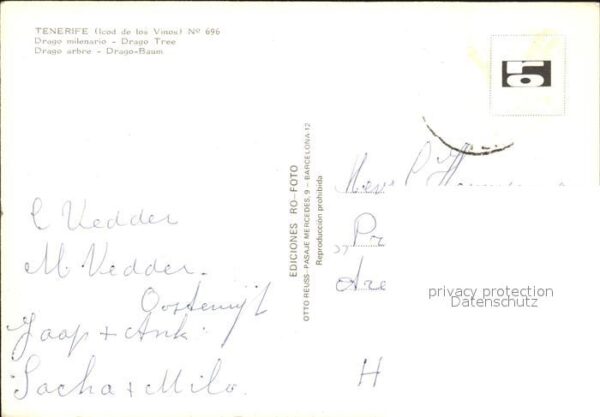 TENERIFE (Icod de los Vinos) Nº 696
Drago milenario - Drago Tree
Drago arbre - Drago-Baum
EDICIONES RO-FOTO
OTTO REUSS-PASAJE MERCEDES, 9 - BARCELONA-12
Reproducción prohibida
C Vedder
M. Vedder.
Oostenrijk
Jaap + Ank.
Sacha + Milo.
Mevr.
„Pr
H
privacy protection
Datenschutz